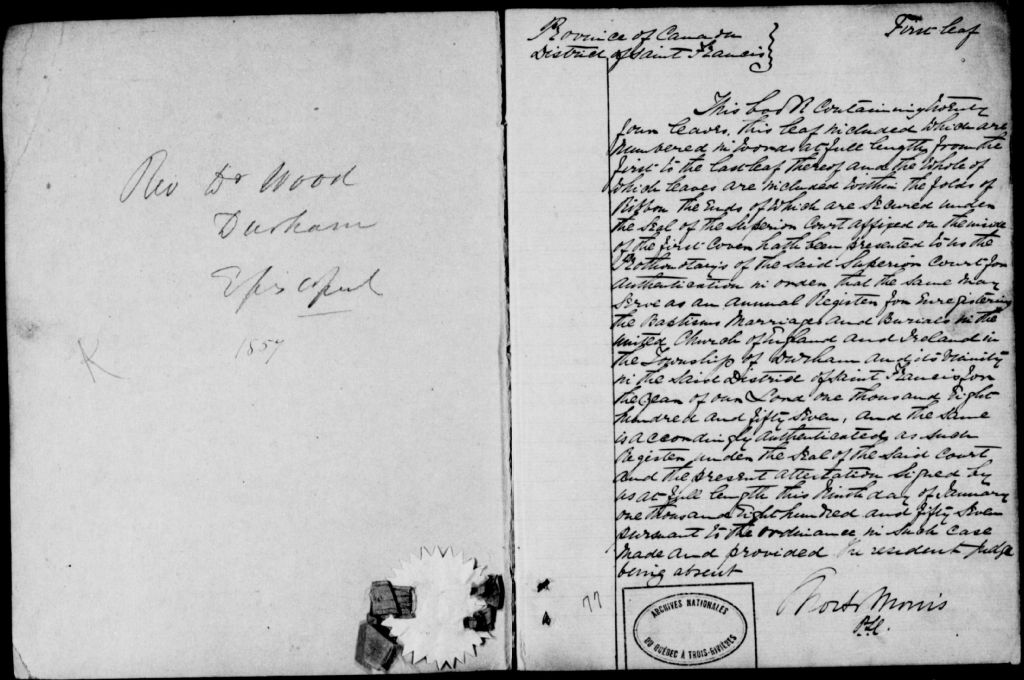 Rev Dr Wood
Durham
Episcopal
1857
K
Province of Canada
District of Saint Francis
First leaf
This book Containing twenty
four leaves, this leaf included which are
numbered in words at full length from the
first to the last leaf thereof and the whole of
which leaves are included within the folds of
Ribbon the Ends of which are Secured under
the Seal of the Superior Court affixed on the inside
of the first Cover hath been presented to us the
Prothonotary's of the said Superior Court for
authentication in order that the same may
Serve as an annual Register for Enregistering
the Baptisms Marriages and Burials in the
united Church of England and Ireland in
the Township of Durham and its vicinity
in the said District of Saint Francis for
the year of our Lord one thousand Eight
hundred and fifty Seven, and the same
is accordingly authenticated as such
Register under the Seal of the said Court
and the present attestation Signed by
us at full length this Ninth day of January
one thousand Eight hundred and fifty Seven
pursuant to the ordinance in such case
made and provided The resident Judge
being absent
Short & Morris
P.S.C.
77
ARCHIVES NATIONALES
DU QUÉBEC À TROIS-RIVIÈRES